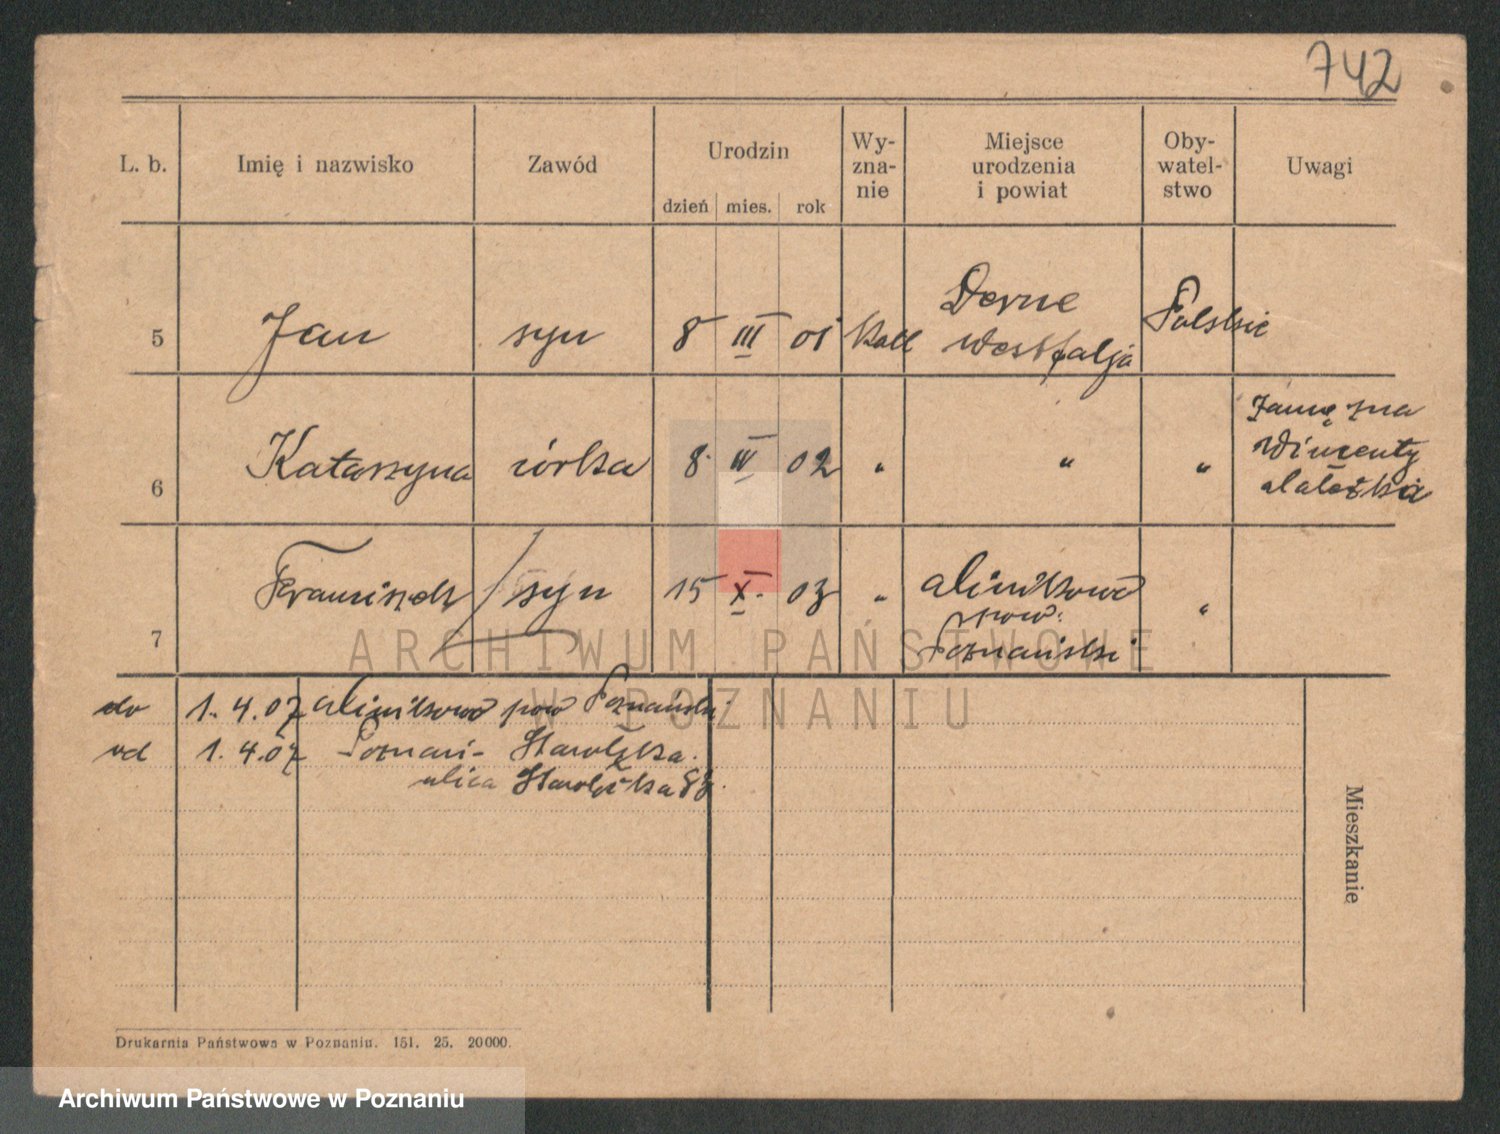 742
L. b. Imię i nazwisko Zawód Urodzin dzień mies. rok Wy-zna-nie Miejsce urodzenia i powiat Oby-watel-stwo Uwagi
5 Jan syn 8 III 01 Katl Derne Westfalja Polskie
6 Katarzyna córka 8 IV 02 " " " Zamężna Wincenty
7 Franciszek syn 15 X. 03 " pow: Poznański "
ARCHIWUM PAŃSTWOWE
W POZNANIU
do 1. 4. 07 pow Poznański
od 1. 4. 07 Poznań- Starołęka.
ulica Starołęcka
Mieszkanie
Drukarnia Państwowa w Poznaniu. 151. 25. 20000.
Archiwum Państwowe w Poznaniu